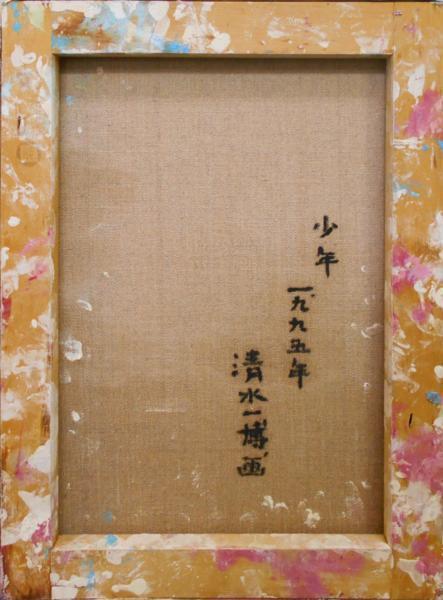 少年
一九九五年
清水一博画